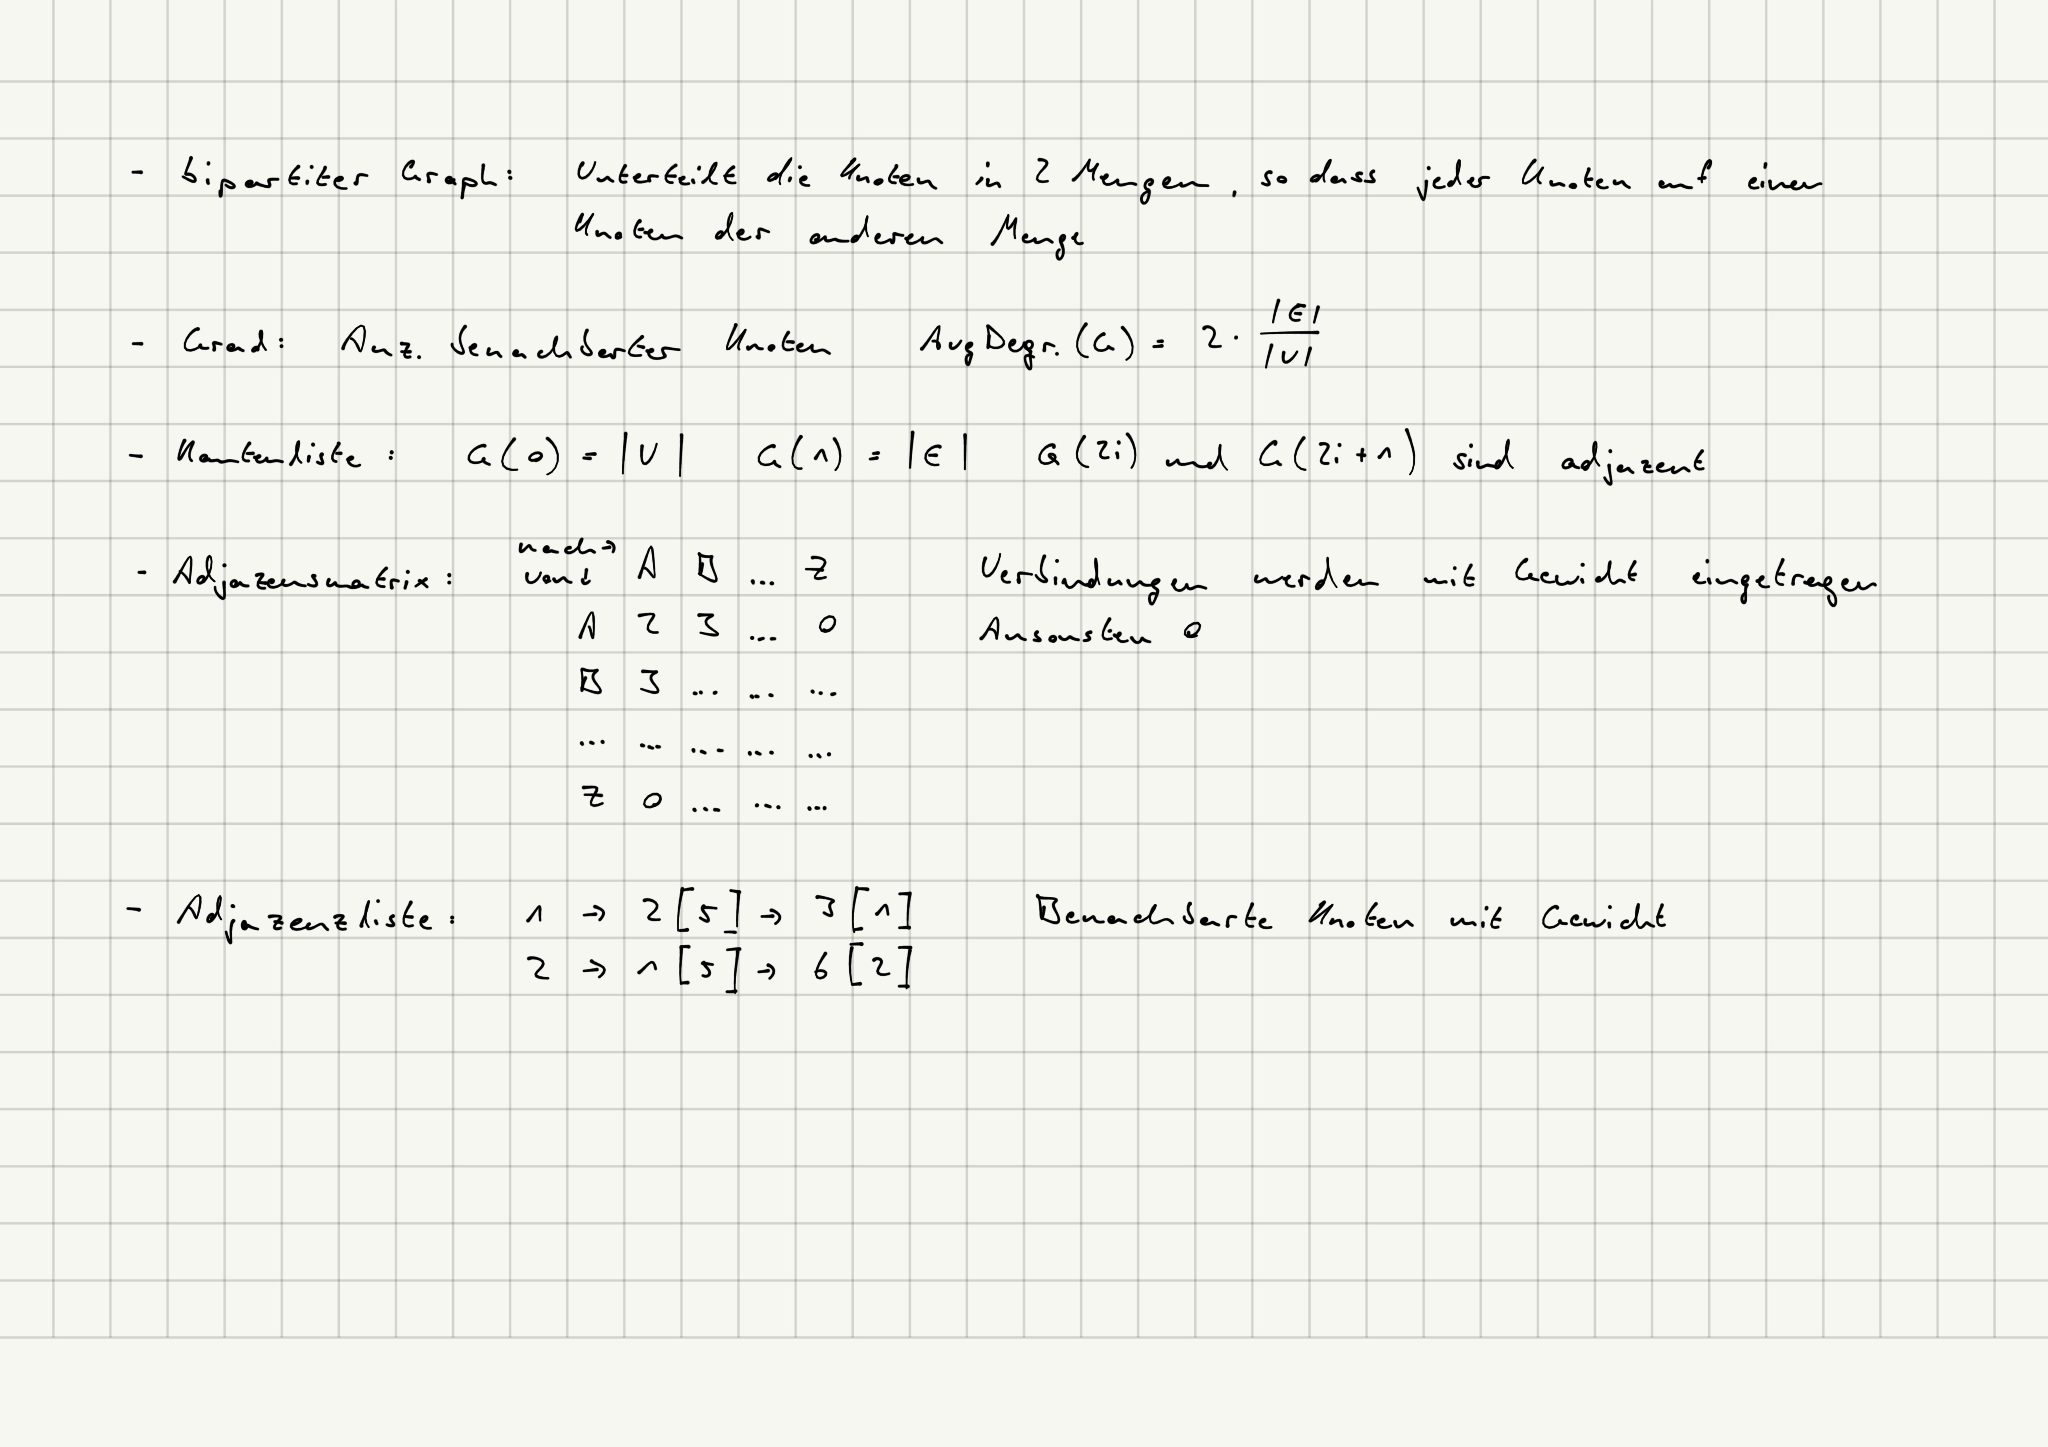 - bipartiter Graph: Unterteilt die Knoten in 2 Mengen, so dass jeder Knoten auf einen
Knoten der anderen Menge
- Grad: Anz. benachbarter Knoten AvgDegr.(G) = 2 · |E| / |V|
- Kantenliste: G(0) = |V| G(1) = |E| G(2i) und G(2i+1) sind adjazent
- Adjazensmatrix: nach→ von↓ A B ... Z Verbindungen werden mit Gewicht eingetragen
A 2 3 ... 0 Ansonsten 0
B 3 ... ... ...
... ... ... ... ...
Z 0 ... ... ...
- Adjazenzliste: 1 → 2 [5] → 3 [1] Benachbarte Knoten mit Gewicht
2 → 1 [5] → 6 [2]